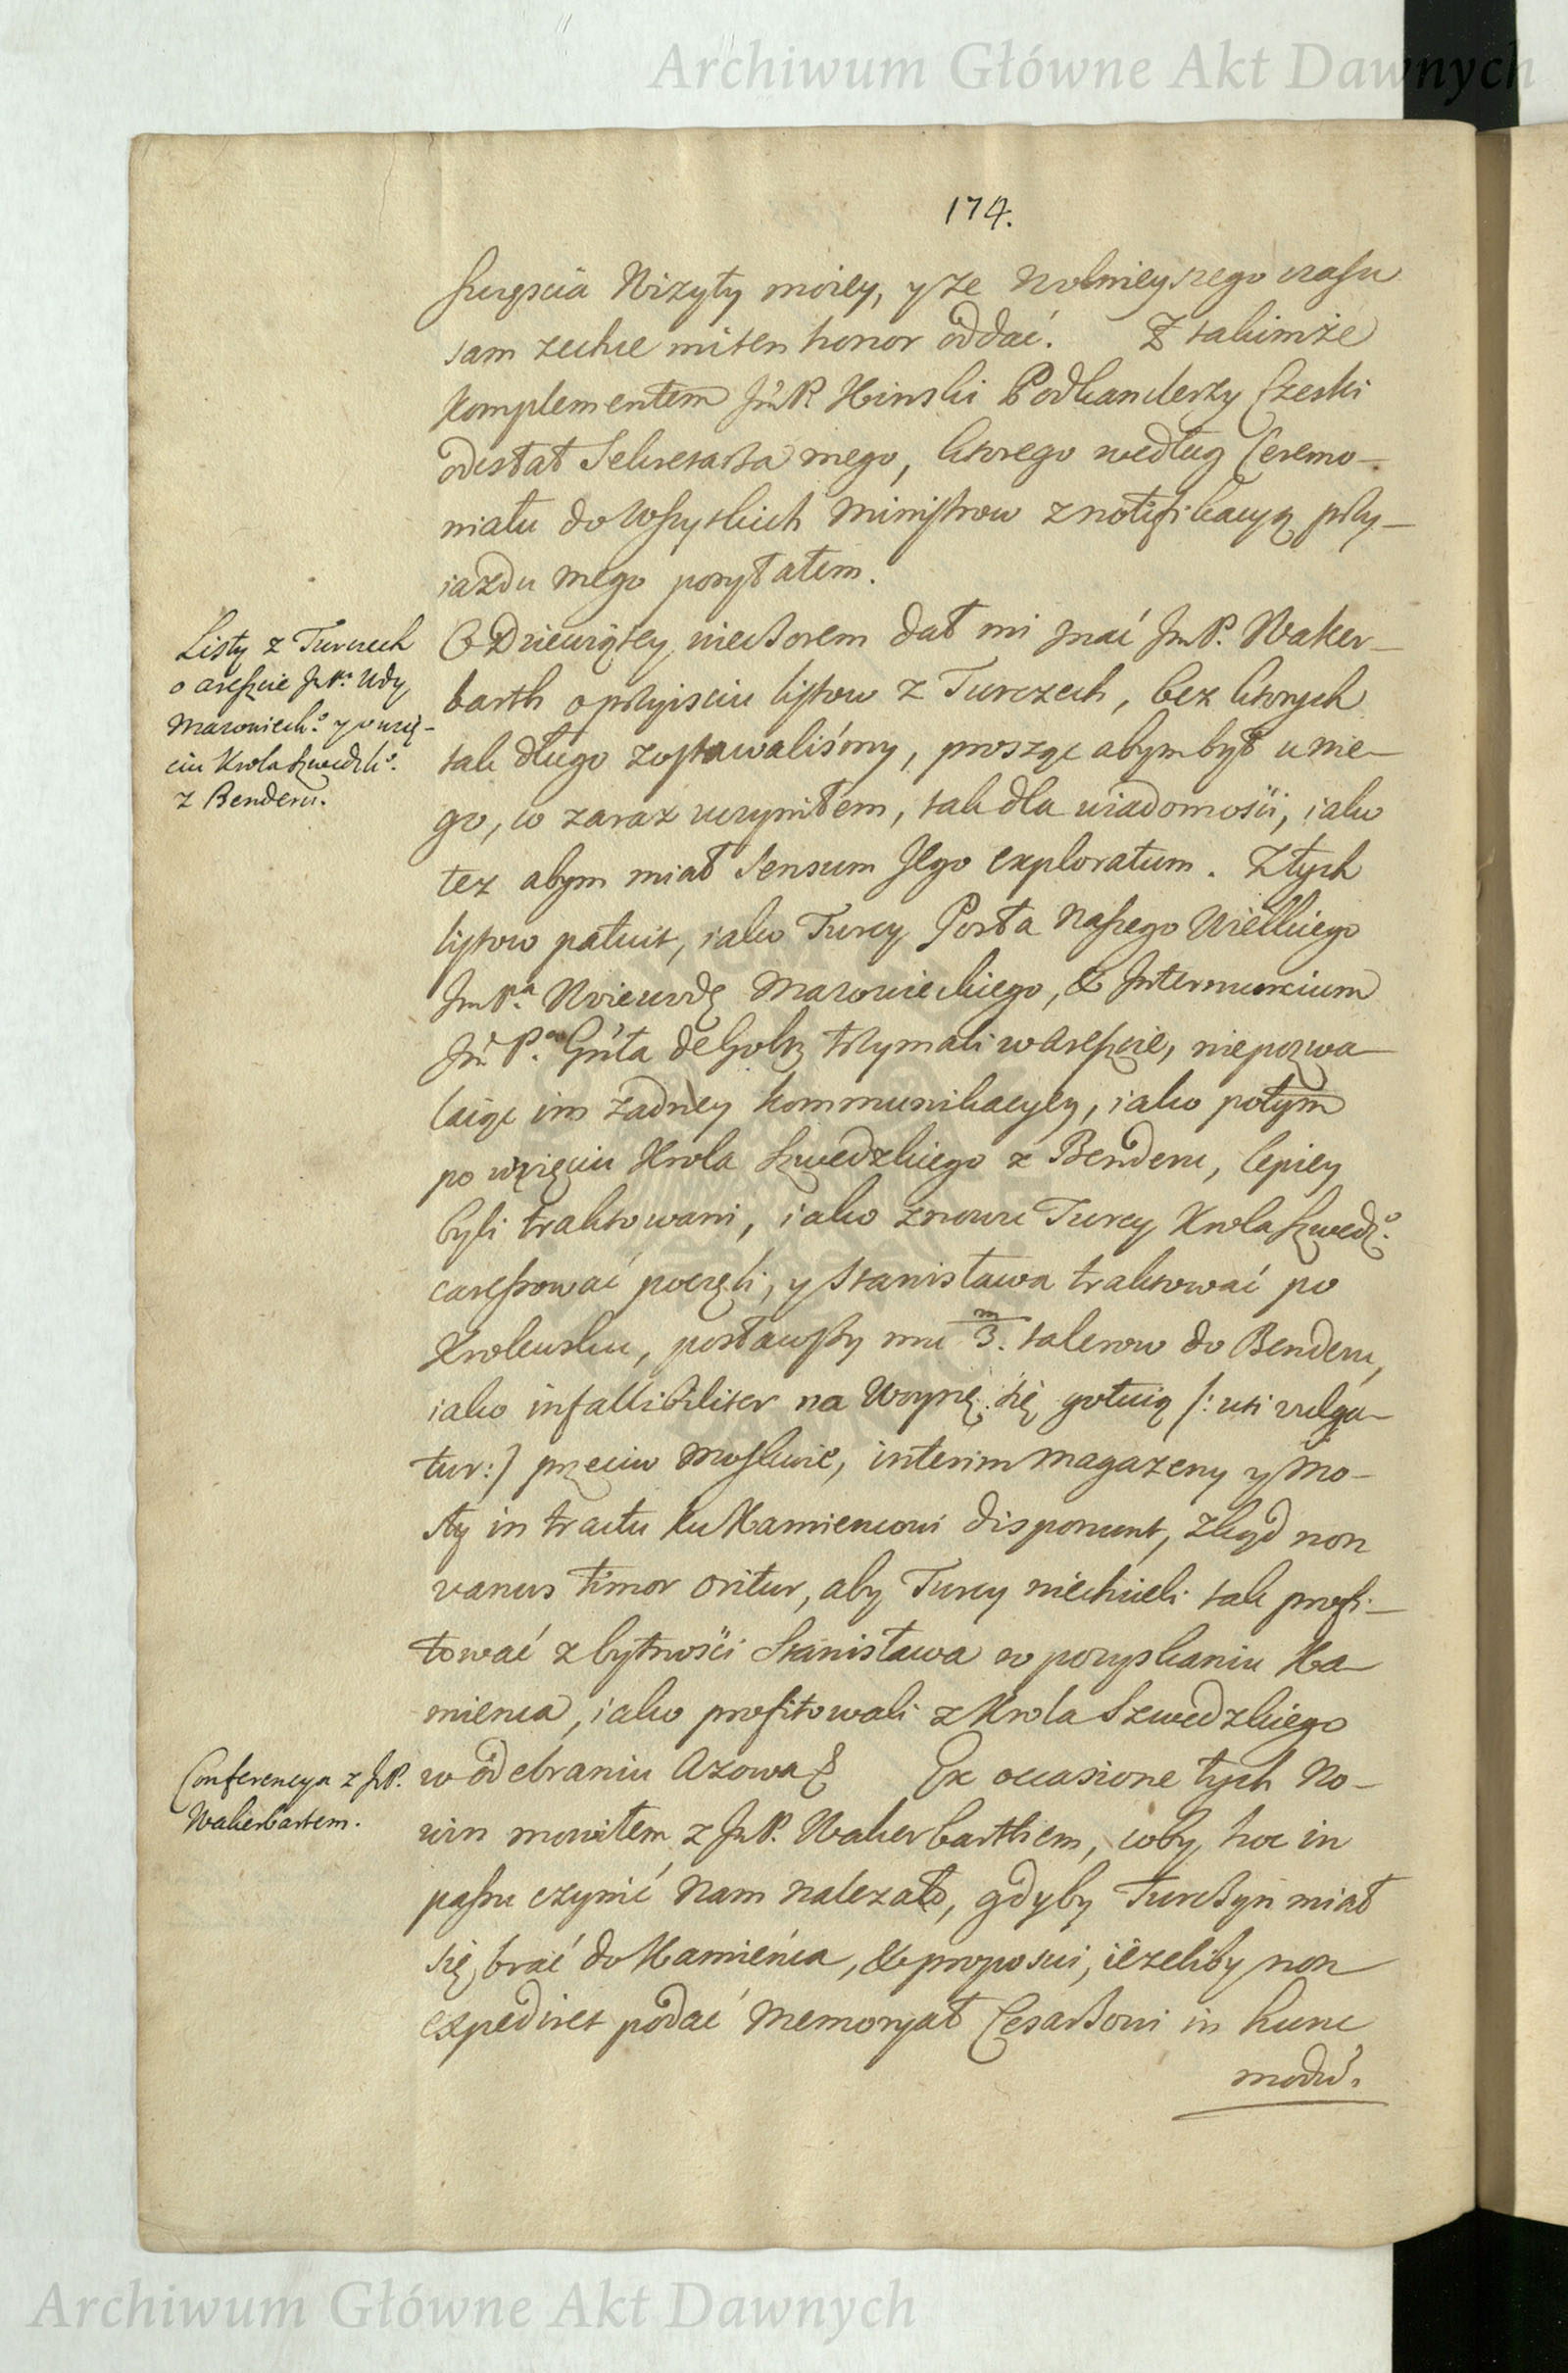 Archiwum Główne Akt Dawnych
174.
szczęścia Wizyty moiey, y ze wolnieyszego czasu
sam zechce mi ten honor oddać. Z takimże
komplementem JmP. Kinski Podkanclerzy Czeski
odesłał Sekretarza mego, ktorego według Ceremo-
niału do wszystkich Ministrow z notifikacyą przy-
iazdu mego posyłałem.
Listy z Turczech
o areszcie JmPa. Wdy
Mazowieck:o y o wzię-
ciu Krola Szwedzk:o
z Benderu.
O Dziewiątey wieczorem dał mi znać JmP. Waker-
barth o przyisciu listow z Turczech, bez ktorych
tak długo zostawaliśmy, prosząc abym był u nie-
go, co zaraz uczyniłem, tak dla wiadomości, iako
tez abym miał sensum Jego exploratum. Z tych
listow patuit, iako Turcy Posła Naszego Wielkiego
JmPa. Woiewodę Mazowieckiego, & Internuncium
JmPa. Gnła de Goltz trzymali w areszcie, niepozwa-
laiąc im żadney kommunikacyey, iako potym
po wzięciu Krola Szwedzkiego z Benderu, lepiey
byli traktowani, iako znowu Turcy Krola Szwedz:o
caressować poczęli, y Stanisława traktować po
Krolewsku, posławszy mu m/3. talerow do Benderu,
iako infallibiliter na Woynę się gotuią /: uti vulga-
tur :/ przeciw Moskwie, interim magazeny y mo-
sty in tractu ku Kamiencowi disponunt, zkąd non
vanus timor oritur, aby Turcy niechcieli tak profi-
tować z bytności Stanisława w pozyskaniu Ka-
mienca, iako profitowali z Krola Szwedzkiego
Conferencya z JmP.
Wakerbartem.
w odebraniu Azowa & Ex occasione tych No-
win mowiłem z JmP. Wakerbarthem, coby hoc in
passu czynić Nam nalezało, gdyby Turczyn miał
się brać do Kamieńca, & proposui, ieżeliby non
expediret podać Memoryał Cesarzowi in hunc
modũ.
Archiwum Główne Akt Dawnych